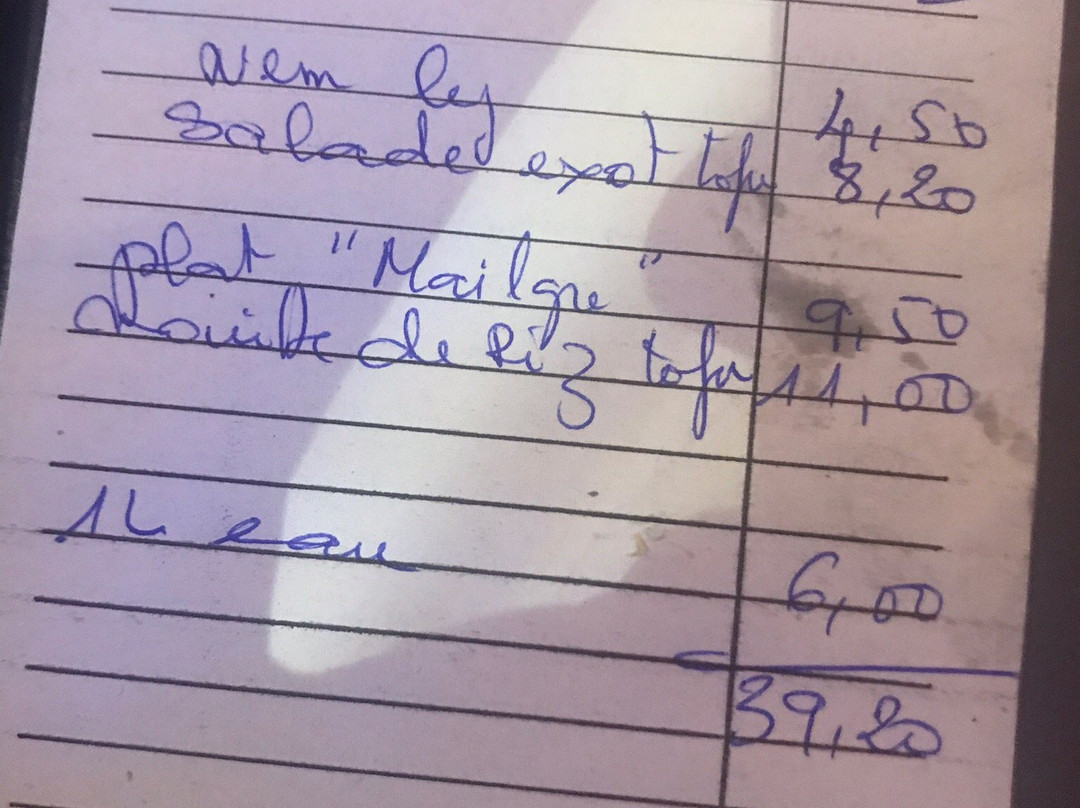 Nem leg 4,50
Salade exot tofu 8,20
plat "Maigre" 9,50
Nouille de Riz tofu 11,00
1L eau 6,00
39,20